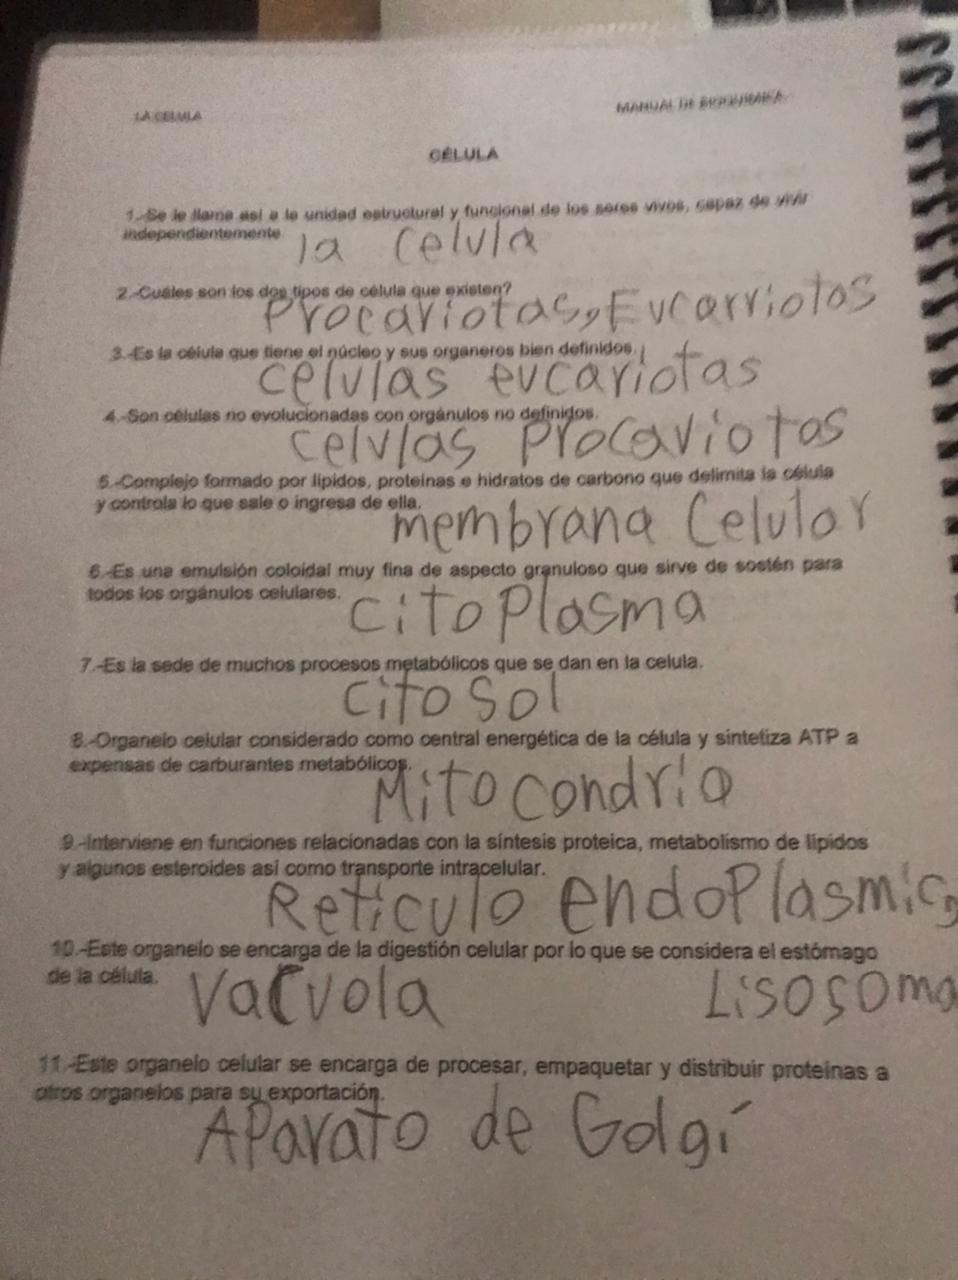 LA CELULA
MANUAL DE BIOQUIMICA
CÉLULA
1.-Se le llama así a la unidad estructural y funcional de los seres vivos, capaz de vivir
independientemente.
la celula
2.-Cuáles son los dos tipos de célula que existen?
Procariotas, Eucarriotas
3.-Es la célula que tiene el núcleo y sus organeros bien definidos.
celulas eucariotas
4.-Son células no evolucionadas con orgánulos no definidos.
celulas Procariotas
5.-Complejo formado por lípidos, proteínas e hidratos de carbono que delimita la célula
y controla lo que sale o ingresa de ella.
membrana Celular
6.-Es una emulsión coloidal muy fina de aspecto granuloso que sirve de sostén para
todos los orgánulos celulares.
citoPlasma
7.-Es la sede de muchos procesos metabólicos que se dan en la celula.
citosol
8.-Organelo celular considerado como central energética de la célula y sintetiza ATP a
expensas de carburantes metabólicos.
Mitocondria
9.-Interviene en funciones relacionadas con la síntesis proteica, metabolismo de lípidos
y algunos esteroides así como transporte intracelular.
Reticulo endoPlasmico
10.-Este organelo se encarga de la digestión celular por lo que se considera el estómago
de la célula.
Vacuola Lisosoma
11.-Este organelo celular se encarga de procesar, empaquetar y distribuir proteínas a
otros organelos para su exportación.
Aparato de Golgí